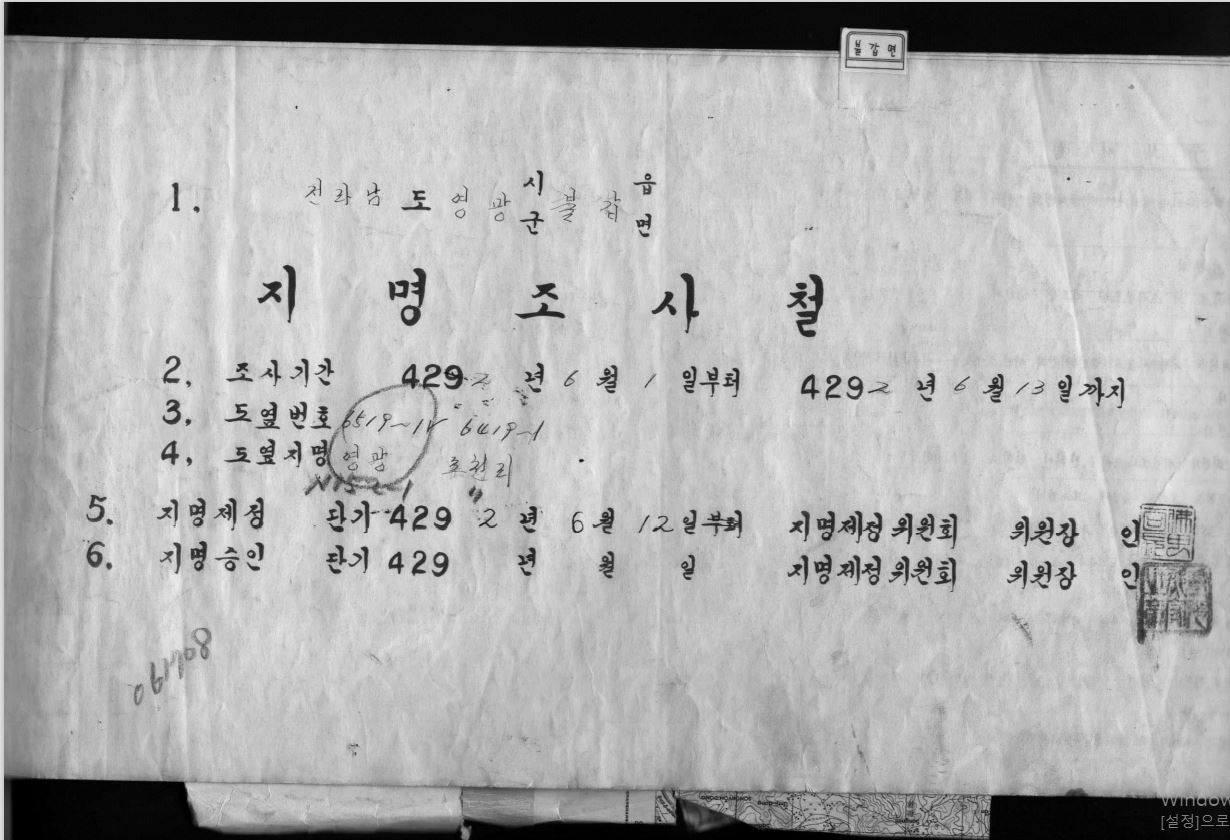 불갑면
1. 전라남 도 영광 시 군 불갑 읍 면
지 명 조 사 철
2, 조사기간 4292 년 6 월 1 일부터 4292 년 6 월 13 일까지
3, 도엽번호 6519~1V 6419~1
4, 도엽지명 영광
5. 지명제정 단기 4292 년 6 월 12 일부터 지명제정위원회 위원장 인
6. 지명승인 단기 429 년 월 일 지명제정위원회 위원장 인